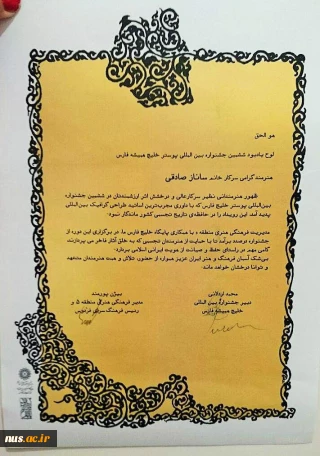 هو الحق
لوح یادبود ششمین جشنواره بین المللی پوستر خلیج همیشه فارس
هنرمند گرامی سرکار خانم ساناز صادقی
ظهور هنرمندانی نظیر سرکارعالی و درخشش اثر ارزشمندتان در ششمین جشنواره
بین‌المللی پوستر خلیج فارس که با داوری مجرب‌ترین اساتید طراحی گرافیک بین‌المللی
پدید آمد این رویداد را در حافظه‌ی تاریخ تجسمی کشور ماندگار نمود.
مدیریت فرهنگی هنری منطقه ۵ با همکاری پایگاه خلیج فارس ما، در برگزاری این دوره از
جشنواره درصدد برآمد تا با حمایت از هنرمندان تجسمی که به خلق آثار فاخر می پردازند،
گامی مهم در راستای حفظ و صیانت از هویت ایرانی اسلامی بردارد.
بی‌شک آسمان فرهنگ و هنر ایران عزیز همواره از حضور، تلاش و همت هنرمندان متعهد
و توانا درخشان خواهد ماند.
محمد اردلانی
دبیر جشنواره بین المللی
خلیج همیشه فارس
بیژن پورمند
مدیر فرهنگی هنری منطقه ۵ و
رئیس فرهنگ سرای فردوس
nus.ac.ir